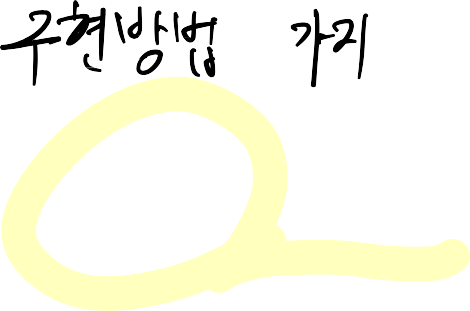 구현방법 가지